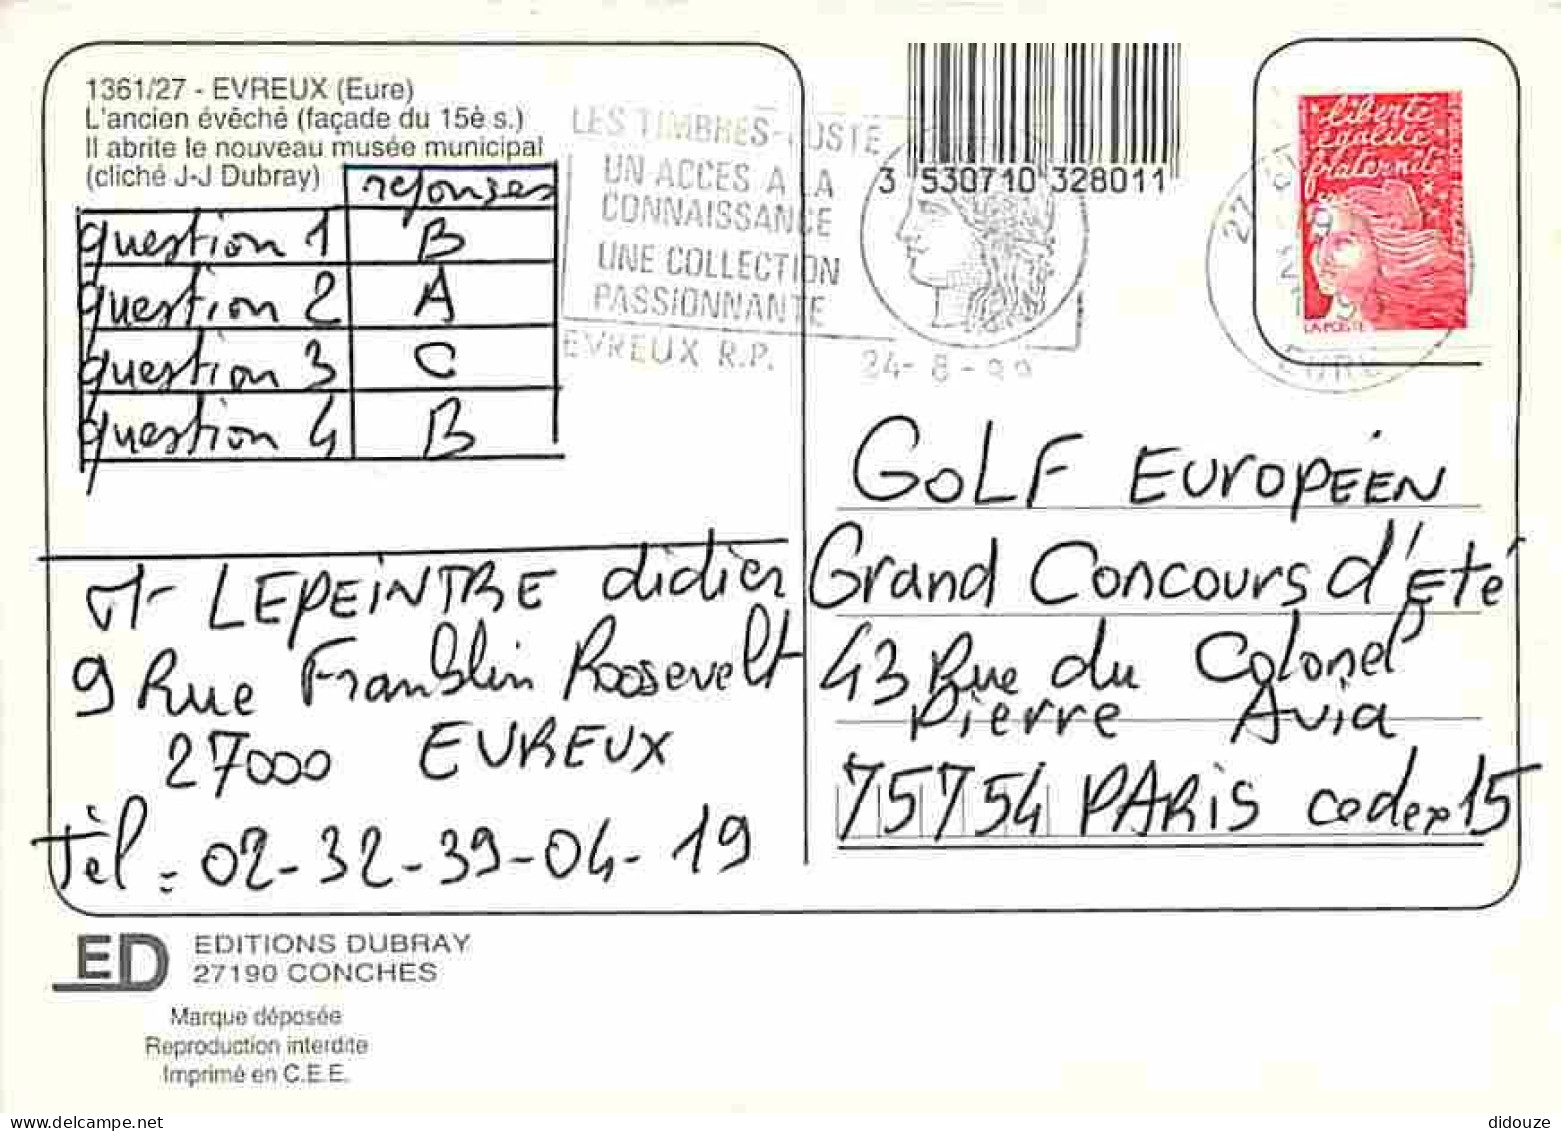 1361/27 - EVREUX (Eure)
L'ancien évêché (façade du 15è s.)
Il abrite le nouveau musée municipal
(cliché J-J Dubray)
reponses
question 1 B
question 2 A
question 3 C
question 4 B
LES TIMBRES-POSTE
UN ACCES A LA
CONNAISSANCE
UNE COLLECTION
PASSIONNANTE
EVREUX R.P.
24-8-99
3 530710 328011
liberté
égalité
fraternité
LA POSTE
27
EURE
GOLF EUROPÉEN
Grand Concours d'Eté
43 Rue du Colonel
Pierre Avia
75754 PARIS cedex 15
LEPEINTRE didier
9 Rue Franklin Roosevelt
27000 EVREUX
Tèl = 02-32-39-04-19
ED
EDITIONS DUBRAY
27190 CONCHES
Marque déposée
Reproduction interdite
Imprimé en C.E.E.
didouze